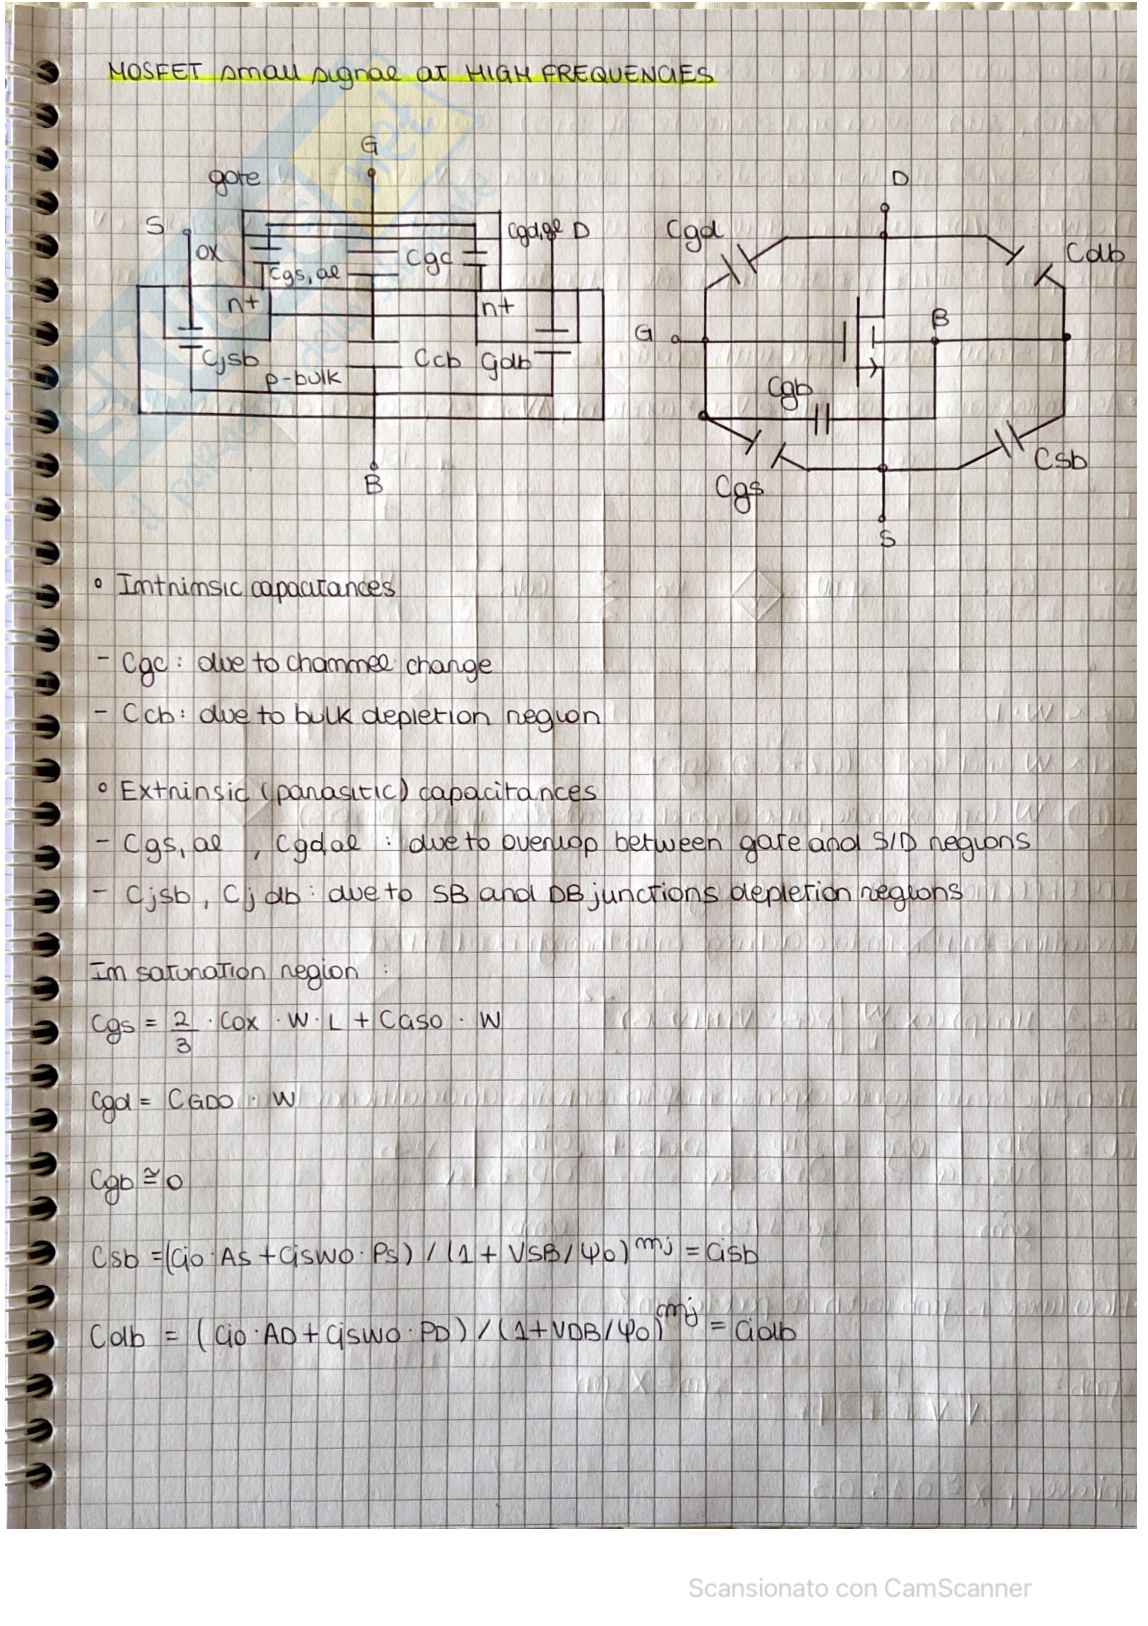 MOSFET small signal at HIGH FREQUENCIES
G
gate
S
ox
Cgs,ol
Cgc
Cgd,ol
D
n+
n+
Cjsb
p-bulk
Ccb
Cjdb
B
D
Cgd
Cdb
G
B
Cgb
Cgs
Csb
S
° Intrinsic capacitances
- Cgc: due to channel change
- Ccb: due to bulk depletion region
° Extrinsic (parasitic) capacitances
- Cgs,ol , Cgd,ol : due to overlap between gate and S/D regions
- Cjsb, Cjdb: due to SB and DB junctions depletion regions
In saturation region :
Cgs = 2/3 · Cox · W · L + CGSO · W
Cgd = CGDO · W
Cgb ≅ 0
Csb = (Cjo · AS + Cjswo · PS) / (1 + VSB/ψo)^mj = Cjsb
Cdb = (Cjo · AD + Cjswo · PD) / (1 + VDB/ψo)^mj = Cjdb
Scansionato con CamScanner